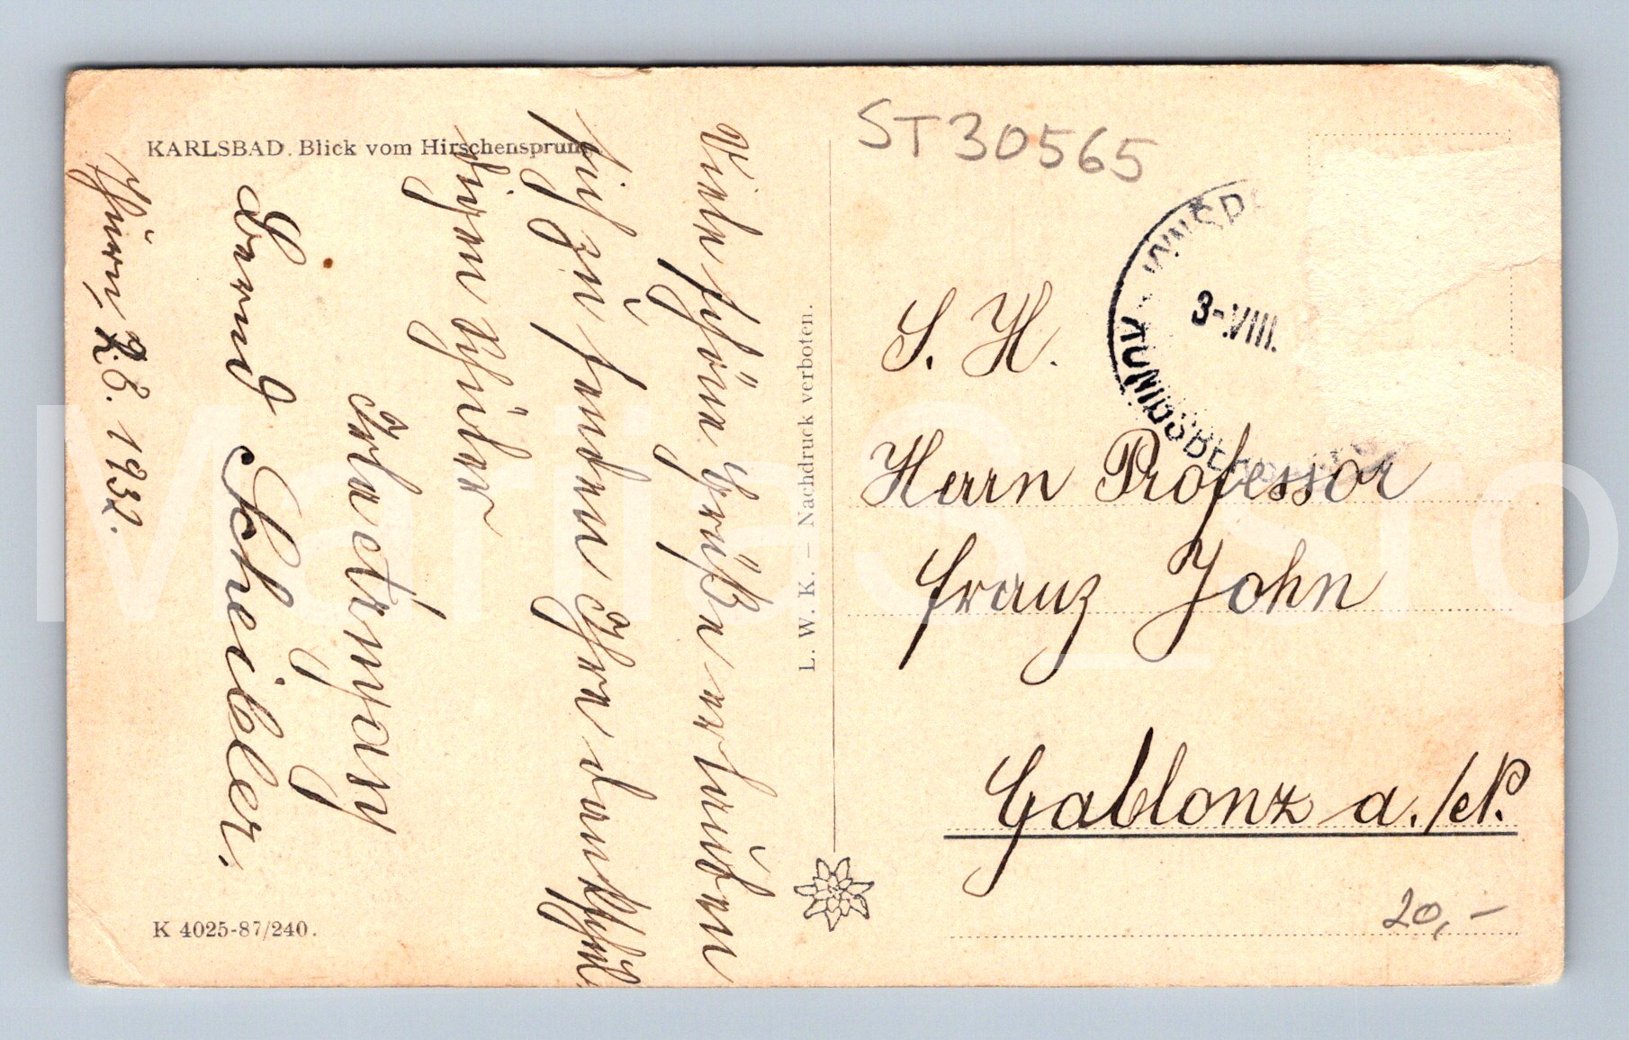 KARLSBAD. Blick vom Hirschensprung.
ST30565
INNSD
3-VIII.
KÖNIGSBE
Viele schöne Grüße erlauben
sich zu senden Ihre dankschul
digen Schüler
Bernd Scheibler.
2.8.1932.
L. W. K. — Nachdruck verboten.
S. H.
Herrn Professor
Franz John
Gablonz a./N.
K 4025-87/240.
20,-
MariaS_sro